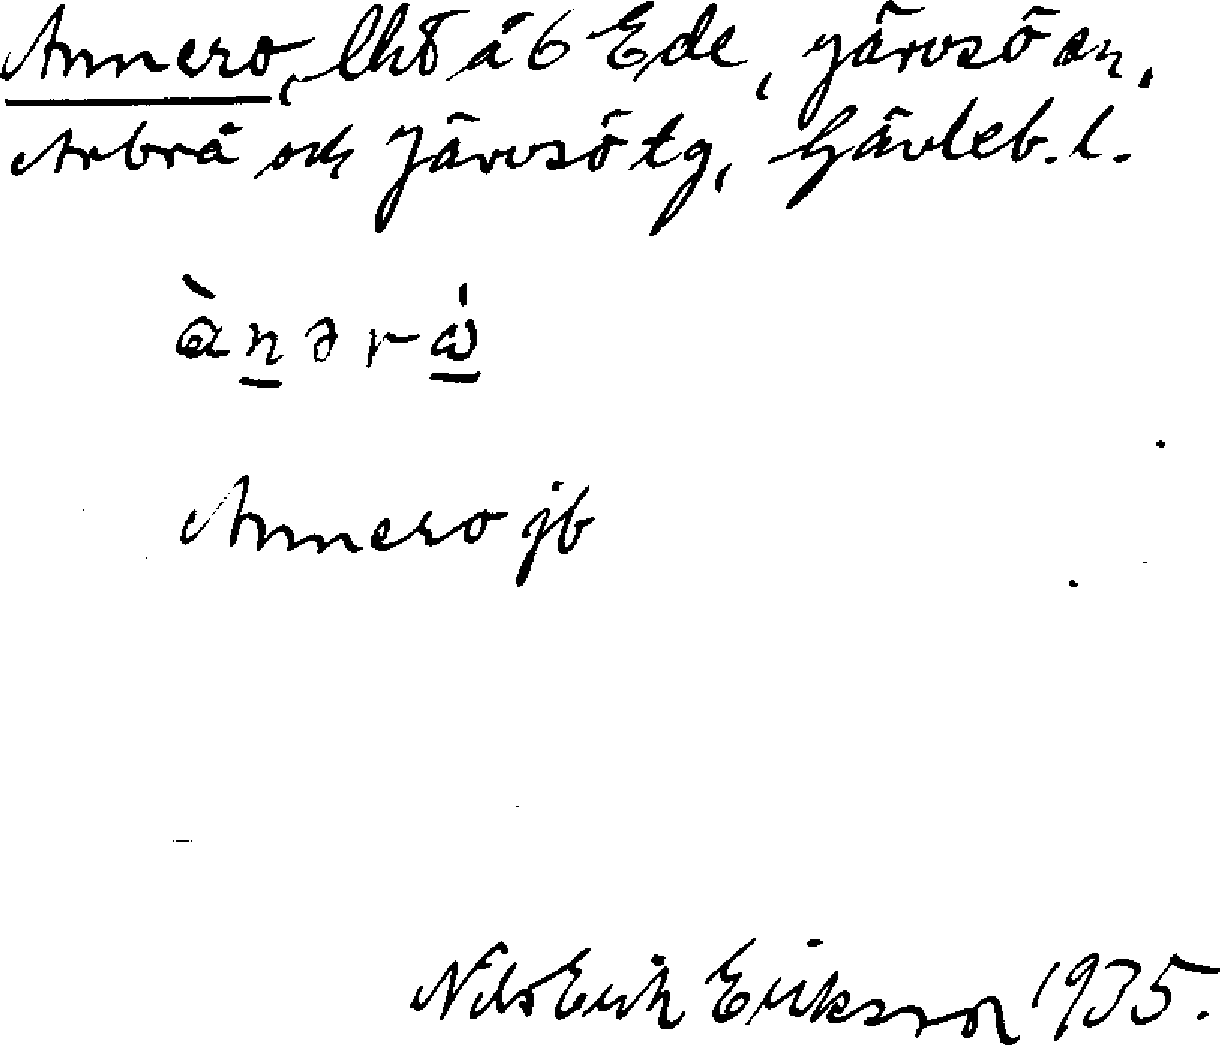 Annero, lht å 6 Ede, Järvsö sn,
Arbrå och Järvsö tg, Gävleb. l.
ànərω̇
Annero jb
Nils Erik Eriksson 1935.